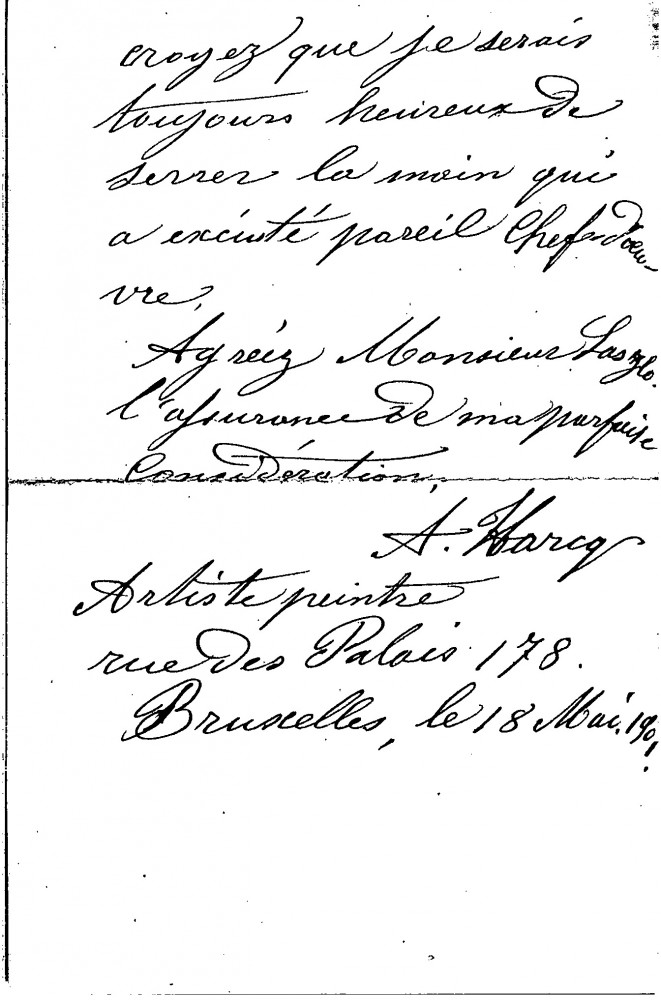 croyez que je serais
toujours heureux de
serrer la main qui
a exécuté pareil Chef-d'œu-
vre.
Agréez Monsieur Laszlo.
l'assurance de ma parfaite
Considération,
A. Harcq
Artiste peintre
rue des Palais 178.
Bruxelles, le 18 Mai. 1901